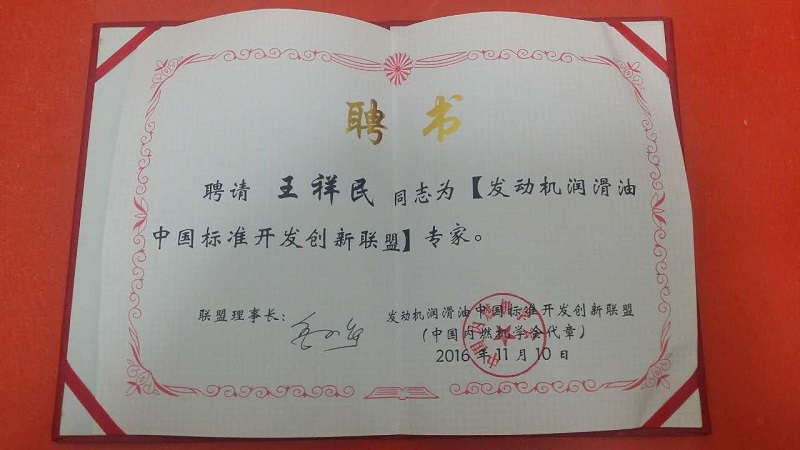 聘书
聘请 王祥民 同志为【发动机润滑油
中国标准开发创新联盟】专家。
联盟理事长：
发动机润滑油中国标准开发创新联盟
（中国内燃机学会代章）
2016年11月10日